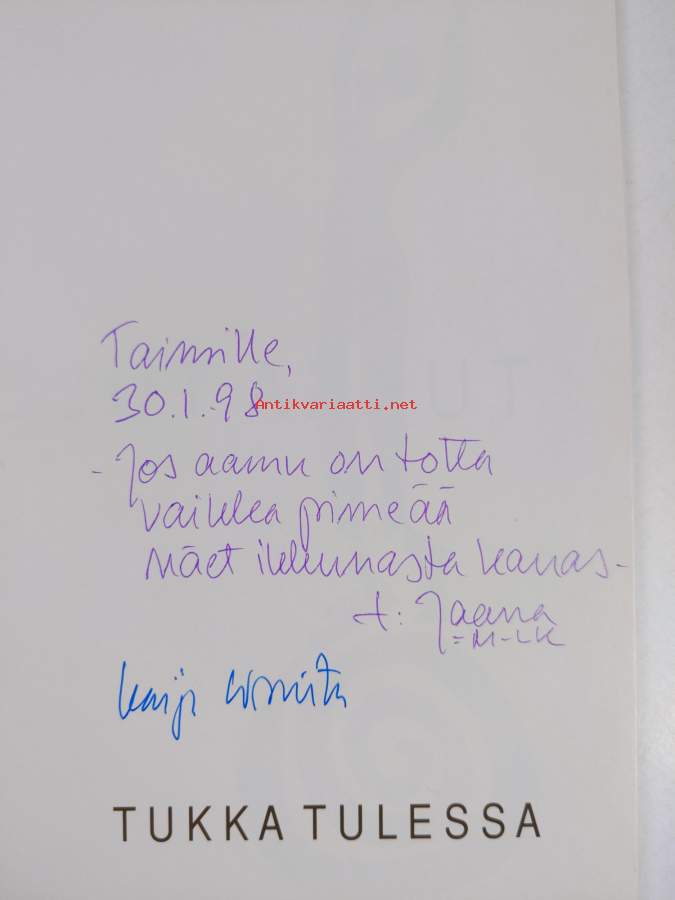 Taimille,
30.1.98
Antikvariaatti.net
- Jos aamu on totta
vaikka pimeää
näet ikkunasta kauas -
t: Jaana
= M-LK
Kaija
TUKKA TULESSA